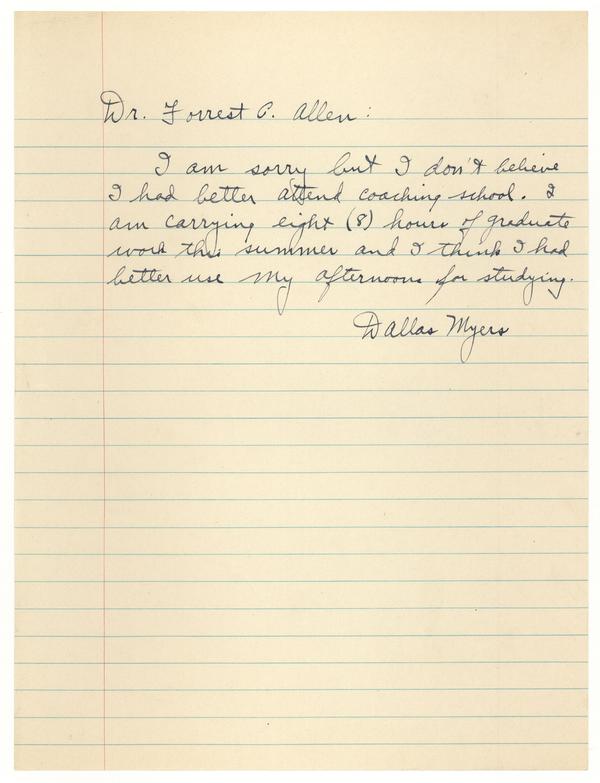 Dr. Forrest C. Allen:
I am sorry but I don't believe
I had better attend coaching school. I
am carrying eight (8) hours of graduate
work this summer and I think I had
better use my afternoons for studying.
Dallas Myers